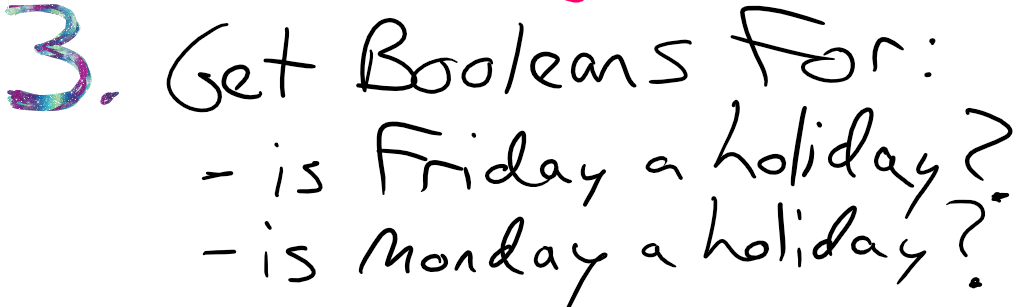 3. Get Booleans For:
- is Friday a holiday?
- is Monday a holiday?